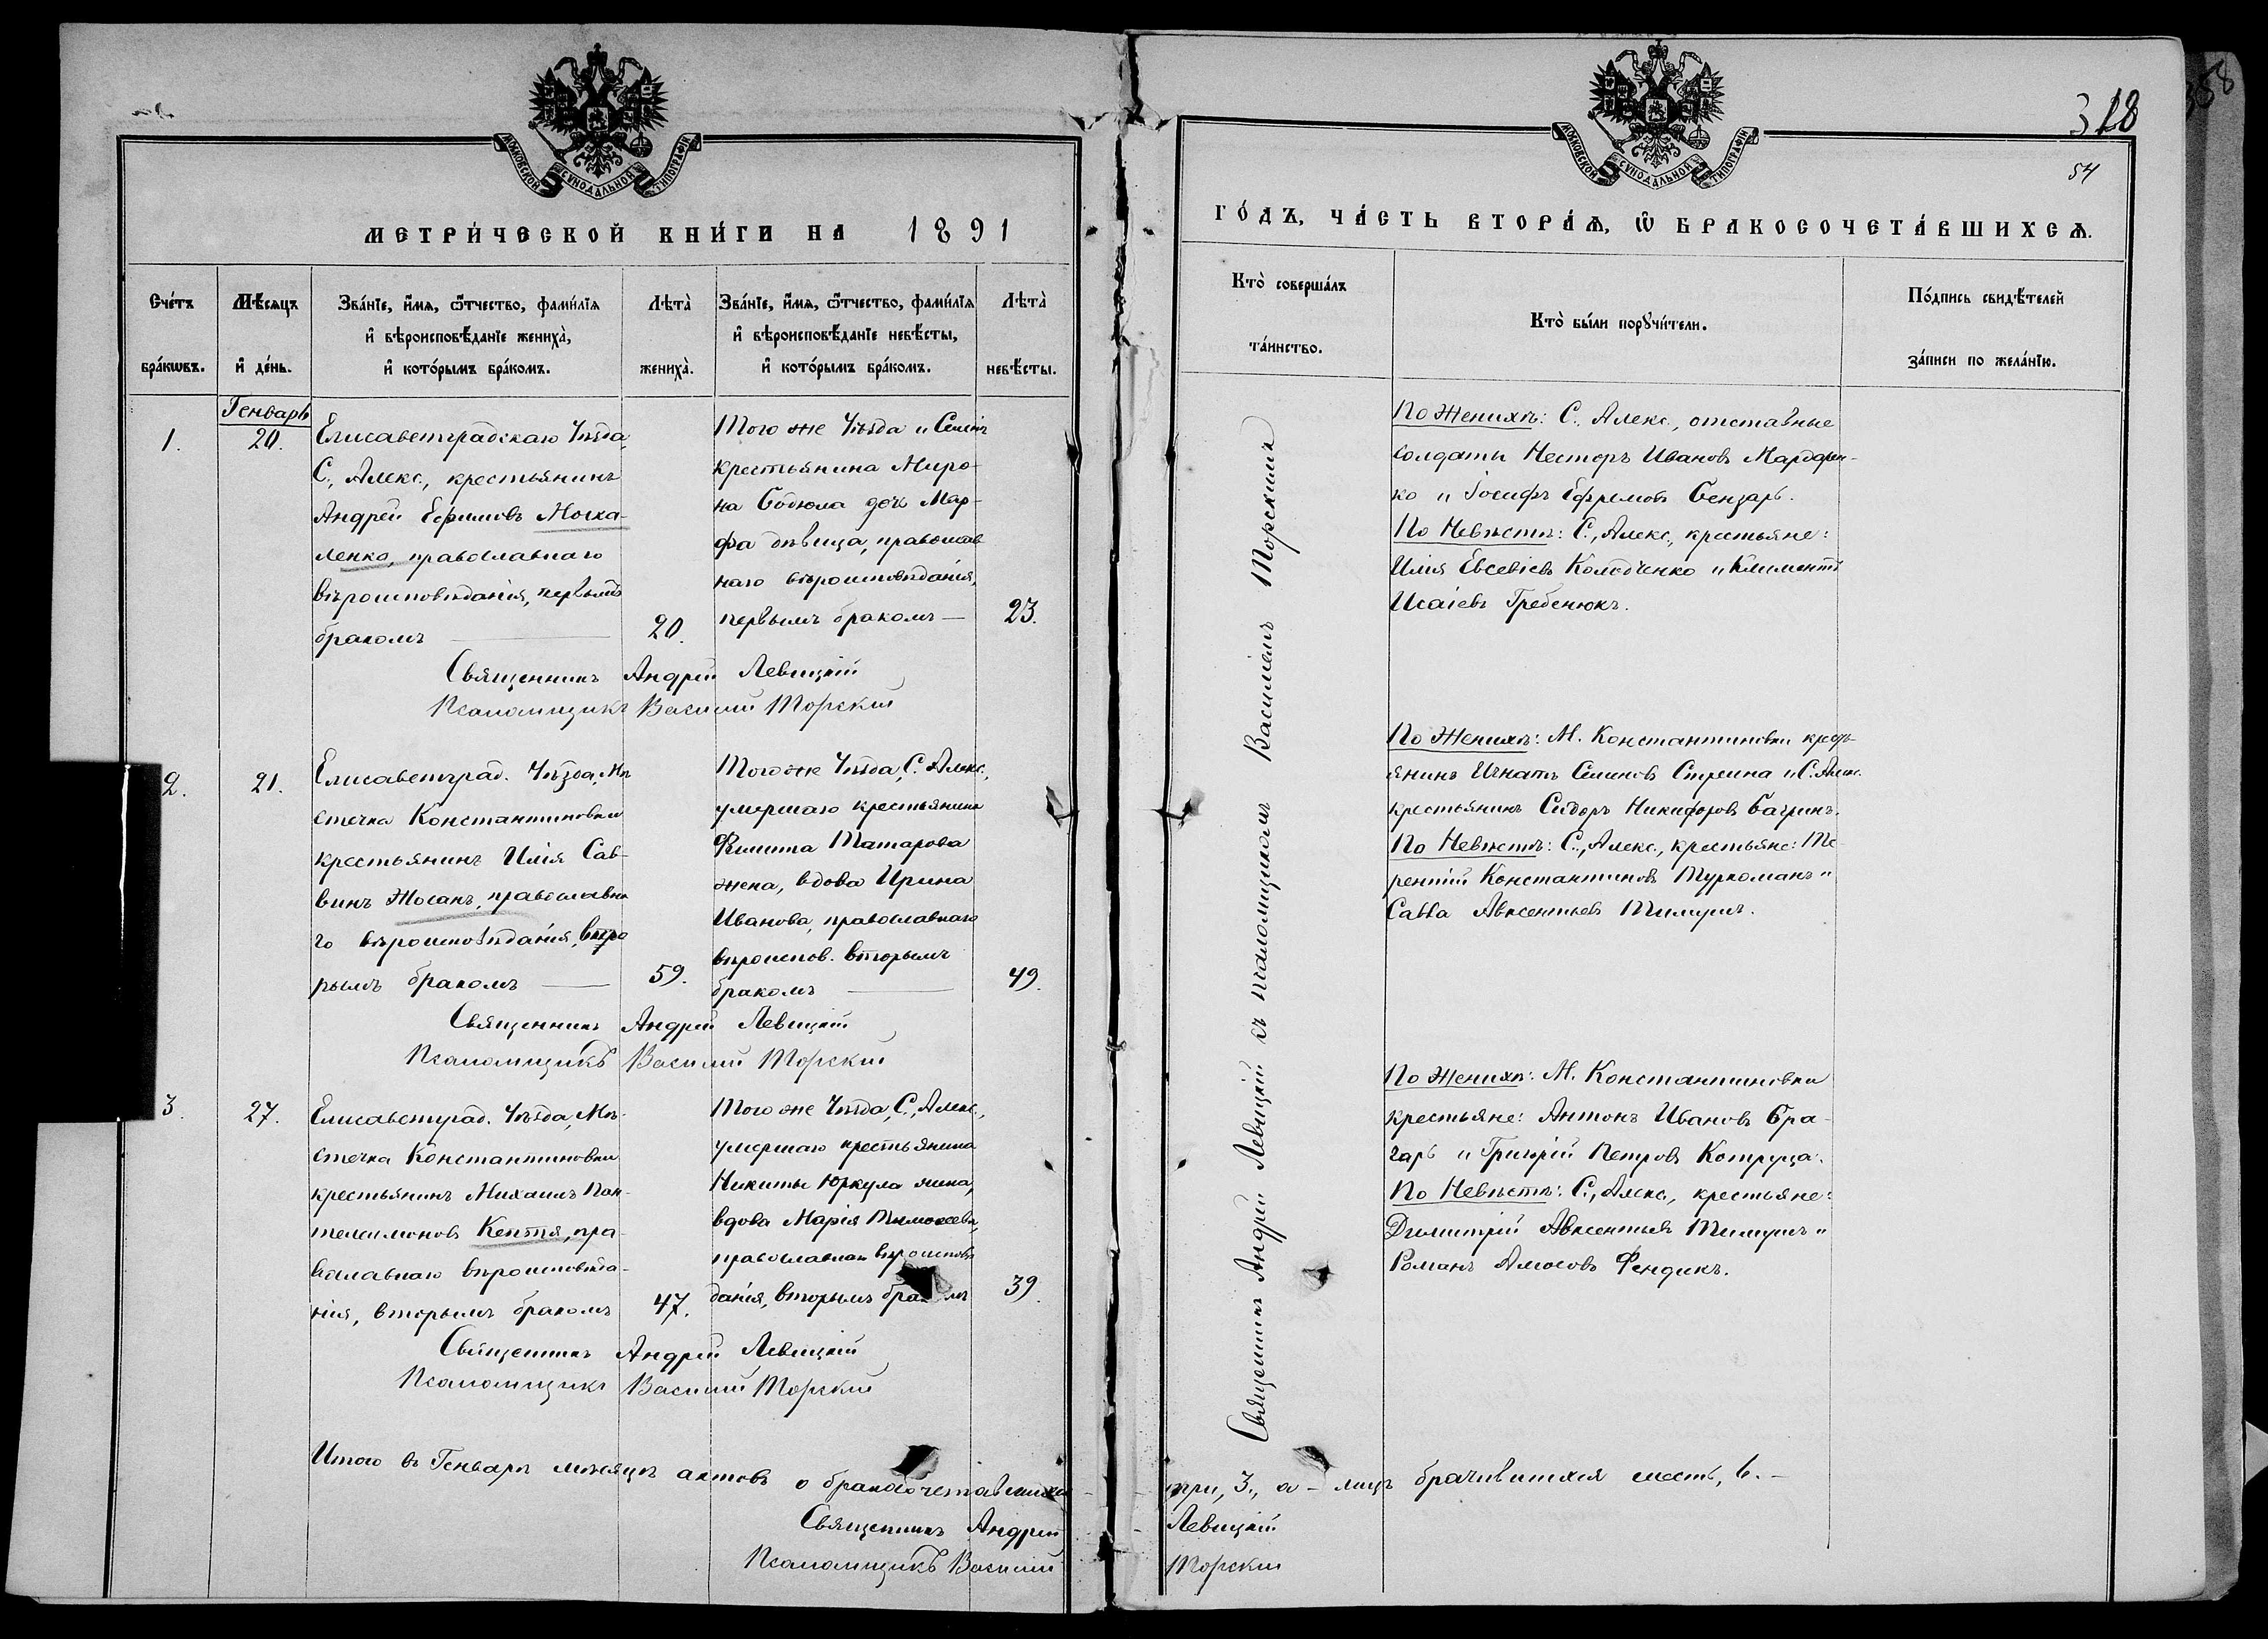 318
54
МОСКОВСКОЙ СѴНОДАЛЬНОЙ ТИПОГРАФІИ
МЕТРИ́ЧЕСКОЙ КНИ́ГИ НА 1891
Сче́тъ бра́кωвъ.
Мѣ́сяцъ и҆ де́нь.
Зва́нїе, и҆́мѧ, ѻ҆́тчество, фами́лїѧ
и҆ вѣроисповѣ́данїе жениха̀,
и҆ кото́рымъ бра́комъ.
Лѣта̀ жениха̀.
Зва́нїе, и҆́мѧ, ѻ҆́тчество, фами́лїѧ
и҆ вѣроисповѣ́данїе невѣ́сты,
и҆ кото́рымъ бра́комъ.
Лѣта̀ невѣ́сты.
Генварь
1.
20.
Елисаветградскаго Уѣзда,
С., Алекс., крестьянинъ
Андрей Ефимовъ Моска-
ленко, православнаго
вѣроисповѣданія, первымъ
бракомъ
20.
Того же Уѣзда и Селенія
крестьянина Миро-
на Бодюла дочь Мар-
фа дѣвица, православ
наго вѣроисповѣданія,
первымъ бракомъ —
23.
Священникъ Андрей Левицкій
Псаломщикъ Василій Торскій
2.
21.
Елисаветград. Уѣзда, Мѣ
стечка Константиновки
крестьянинъ Илія Сав-
винъ Жосанъ, православна
го вѣроисповѣданія, вто
рымъ бракомъ —
59.
Того же Уѣзда, С. Алекс.,
умершаго крестьянина
Филипа Татарова
жена, вдова Ирина
Иванова, православнаго
вѣроиспов. вторымъ
бракомъ —
49.
Священникъ Андрей Левицкій
Псаломщикъ Василій Торскій
3.
27.
Елисаветград. Уѣзда, Мѣ-
стечка Константиновки
крестьянинъ Михаилъ Пан-
телеимоновъ Кептя, пра-
вославнаго вѣроисповѣда-
нія, вторымъ бракомъ
47.
Того же Уѣзда, С., Алекс.,
умершаго крестьянина
Никиты Юркула жена,
вдова Марія Тимоѳеева,
православнаго вѣроисповѣ
данія, вторымъ бракомъ
39.
Священникъ Андрей Левицкій
Псаломщикъ Василій Торскій
Итого въ Генварѣ мѣсяцѣ актовъ о бракосочетавшихся
Священникъ Андрей
Псаломщикъ Василій
МОСКОВСКОЙ СѴНОДАЛЬНОЙ ТИПОГРАФІИ
ГО́ДЪ, ЧА́СТЬ ВТОРА́Ѧ, Ѡ҆ БРАКОСОЧЕТА́ВШИХСѦ.
Кто̀ соверша́лъ та́инство.
Кто̀ бы́ли порꙋчи́тели.
По́дпись свидѣ́телей за́писи по жела́нїю.
Священникъ Андрей Левицкій съ псаломщикомъ Василіемъ Торскимъ
По Женихѣ: С., Алекс., отставные
солдаты Несторъ Ивановъ Мардарен-
ко и Іосифъ Ефремовъ Бензарь.
По Невѣстѣ: С., Алекс., крестьяне:
Илія Евсевіевъ Колодченко и Климентъ
Исаіевъ Гребенюкъ.
По Женихѣ: М. Константиновки кресть-
янинъ Игнатъ Семеновъ Стреина и С. Алек.
крестьянинъ Сидоръ Никифоровъ Багринъ.
По Невѣстѣ: С., Алекс., крестьяне: Те-
рентій Константиновъ Туркоманъ и
Савва Авксентьевъ Тимуръ.
По Женихѣ: М. Константиновки
крестьяне: Антонъ Ивановъ Бра-
гарь и Григорій Петровъ Котруца.
По Невѣстѣ: С., Алекс., крестьяне:
Димитрій Авксентьевъ Тимуръ и
Романъ Амосовъ Фендикъ.
три, 3., а – лицъ брачившихся шесть, 6. –
Левицкій
Торскій